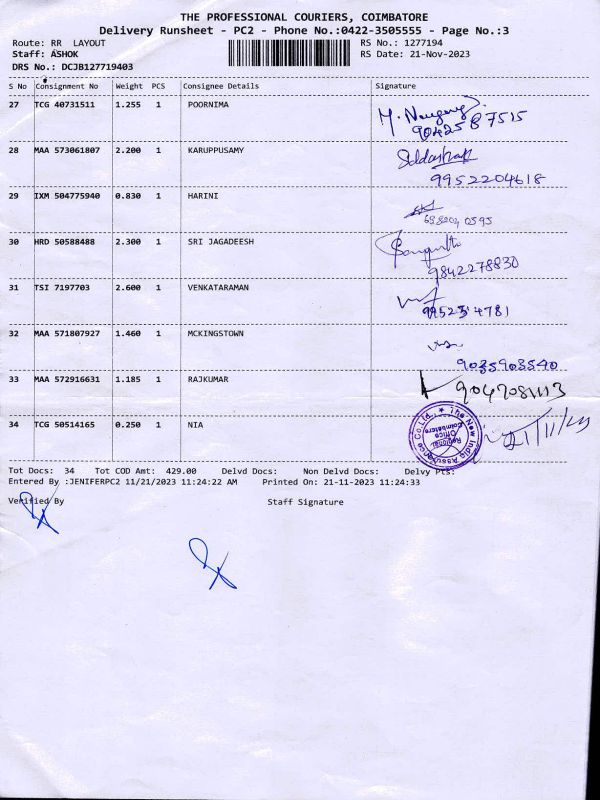 THE PROFESSIONAL COURIERS, COIMBATORE
Delivery Runsheet - PC2 - Phone No.:0422-3505555 - Page No.:3
Route: RR LAYOUT RS No.: 1277194
Staff: ASHOK RS Date: 21-Nov-2023
DRS No.: DCJB127719403
S No Consignment No Weight PCS Consignee Details Signature
27 TCG 40731511 1.255 1 POORNIMA
90425 87515
28 MAA 573061807 2.200 1 KARUPPUSAMY
9952204618
29 IXM 504775940 0.830 1 HARINI
30 HRD 50588488 2.300 1 SRI JAGADEESH
9842278830
31 TSI 7197703 2.600 1 VENKATARAMAN
32 MAA 571807927 1.460 1 MCKINGSTOWN
33 MAA 572916631 1.185 1 RAJKUMAR
34 TCG 50514165 0.250 1 NIA
The New India Assurance Co.Ltd.
Regional Office Coimbatore
21/11/23
Tot Docs: 34 Tot COD Amt: 429.00 Delvd Docs: Non Delvd Docs: Delvy Pts:
Entered By :JENIFERPC2 11/21/2023 11:24:22 AM Printed On: 21-11-2023 11:24:33
Verified By Staff Signature